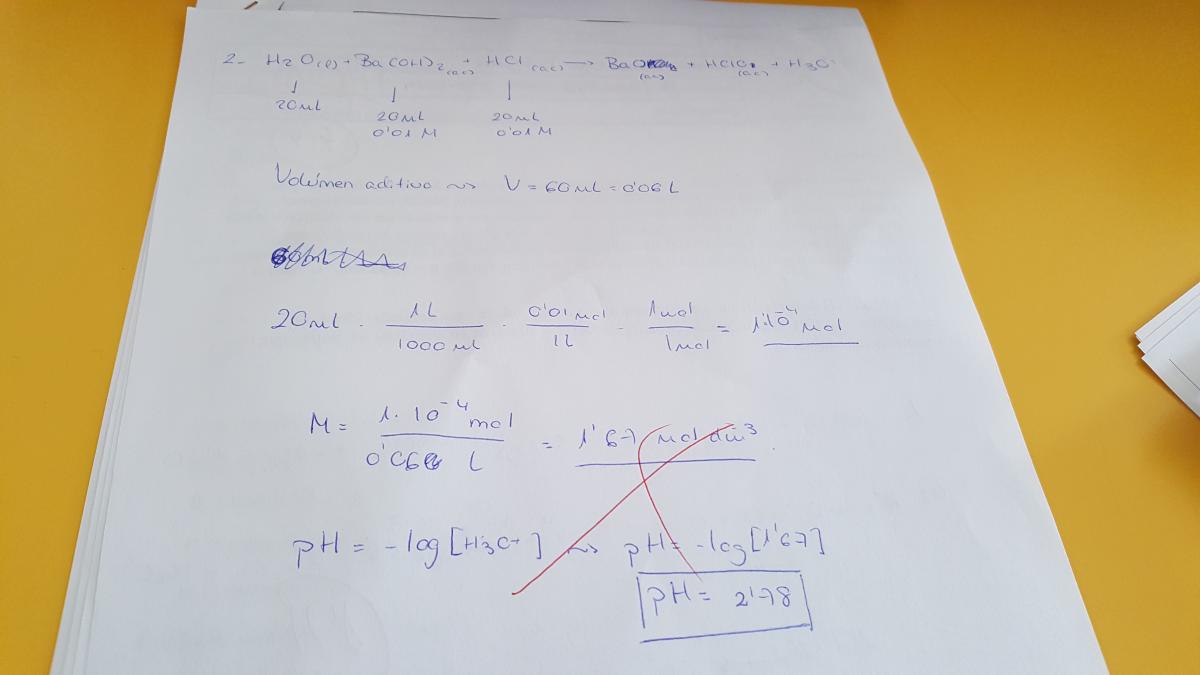 2- H2O(l) + Ba(OH)2 (ac) + HCl (ac) → BaO (ac) + HClO (ac) + H3O
20mL
20mL 20mL
0'01 M 0'01 M
Volúmen aditivo ~> V = 60mL = 0'06 L
20mL · 1L / 1000 mL · 0'01 mol / 1L · 1mol / 1mol = 1·10^-4 mol
M = 1·10^-4 mol / 0'06 L = 1'67 mol dm^3
pH = -log [H3O+] ~> pH = -log [1'67]
pH = 2'78